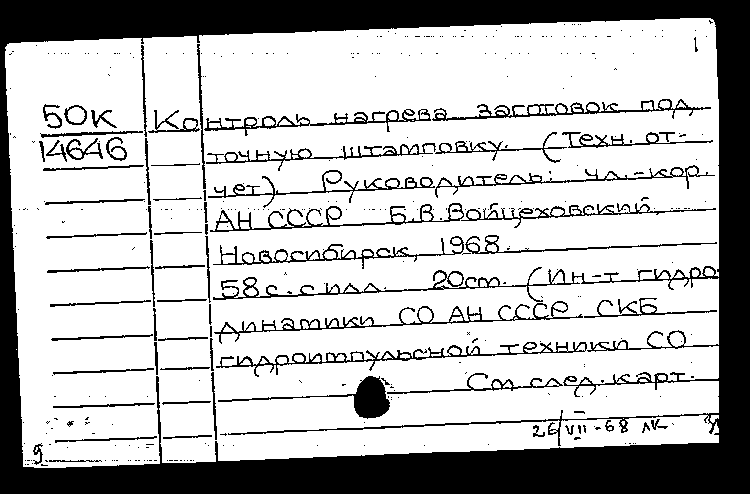 1
50К Контроль нагрева заготовок под
14646 точную штамповку. (Техн. от-
чет). Руководитель: чл.-кор.
АН СССР Б.В. Войцеховский.
Новосибирск, 1968.
58 с. с илл. 20см. (Ин-т гидро-
динамики СО АН СССР. СКБ
гидроимпульсной техники СО
См след. карт.
26/VII-68 ЛК
9